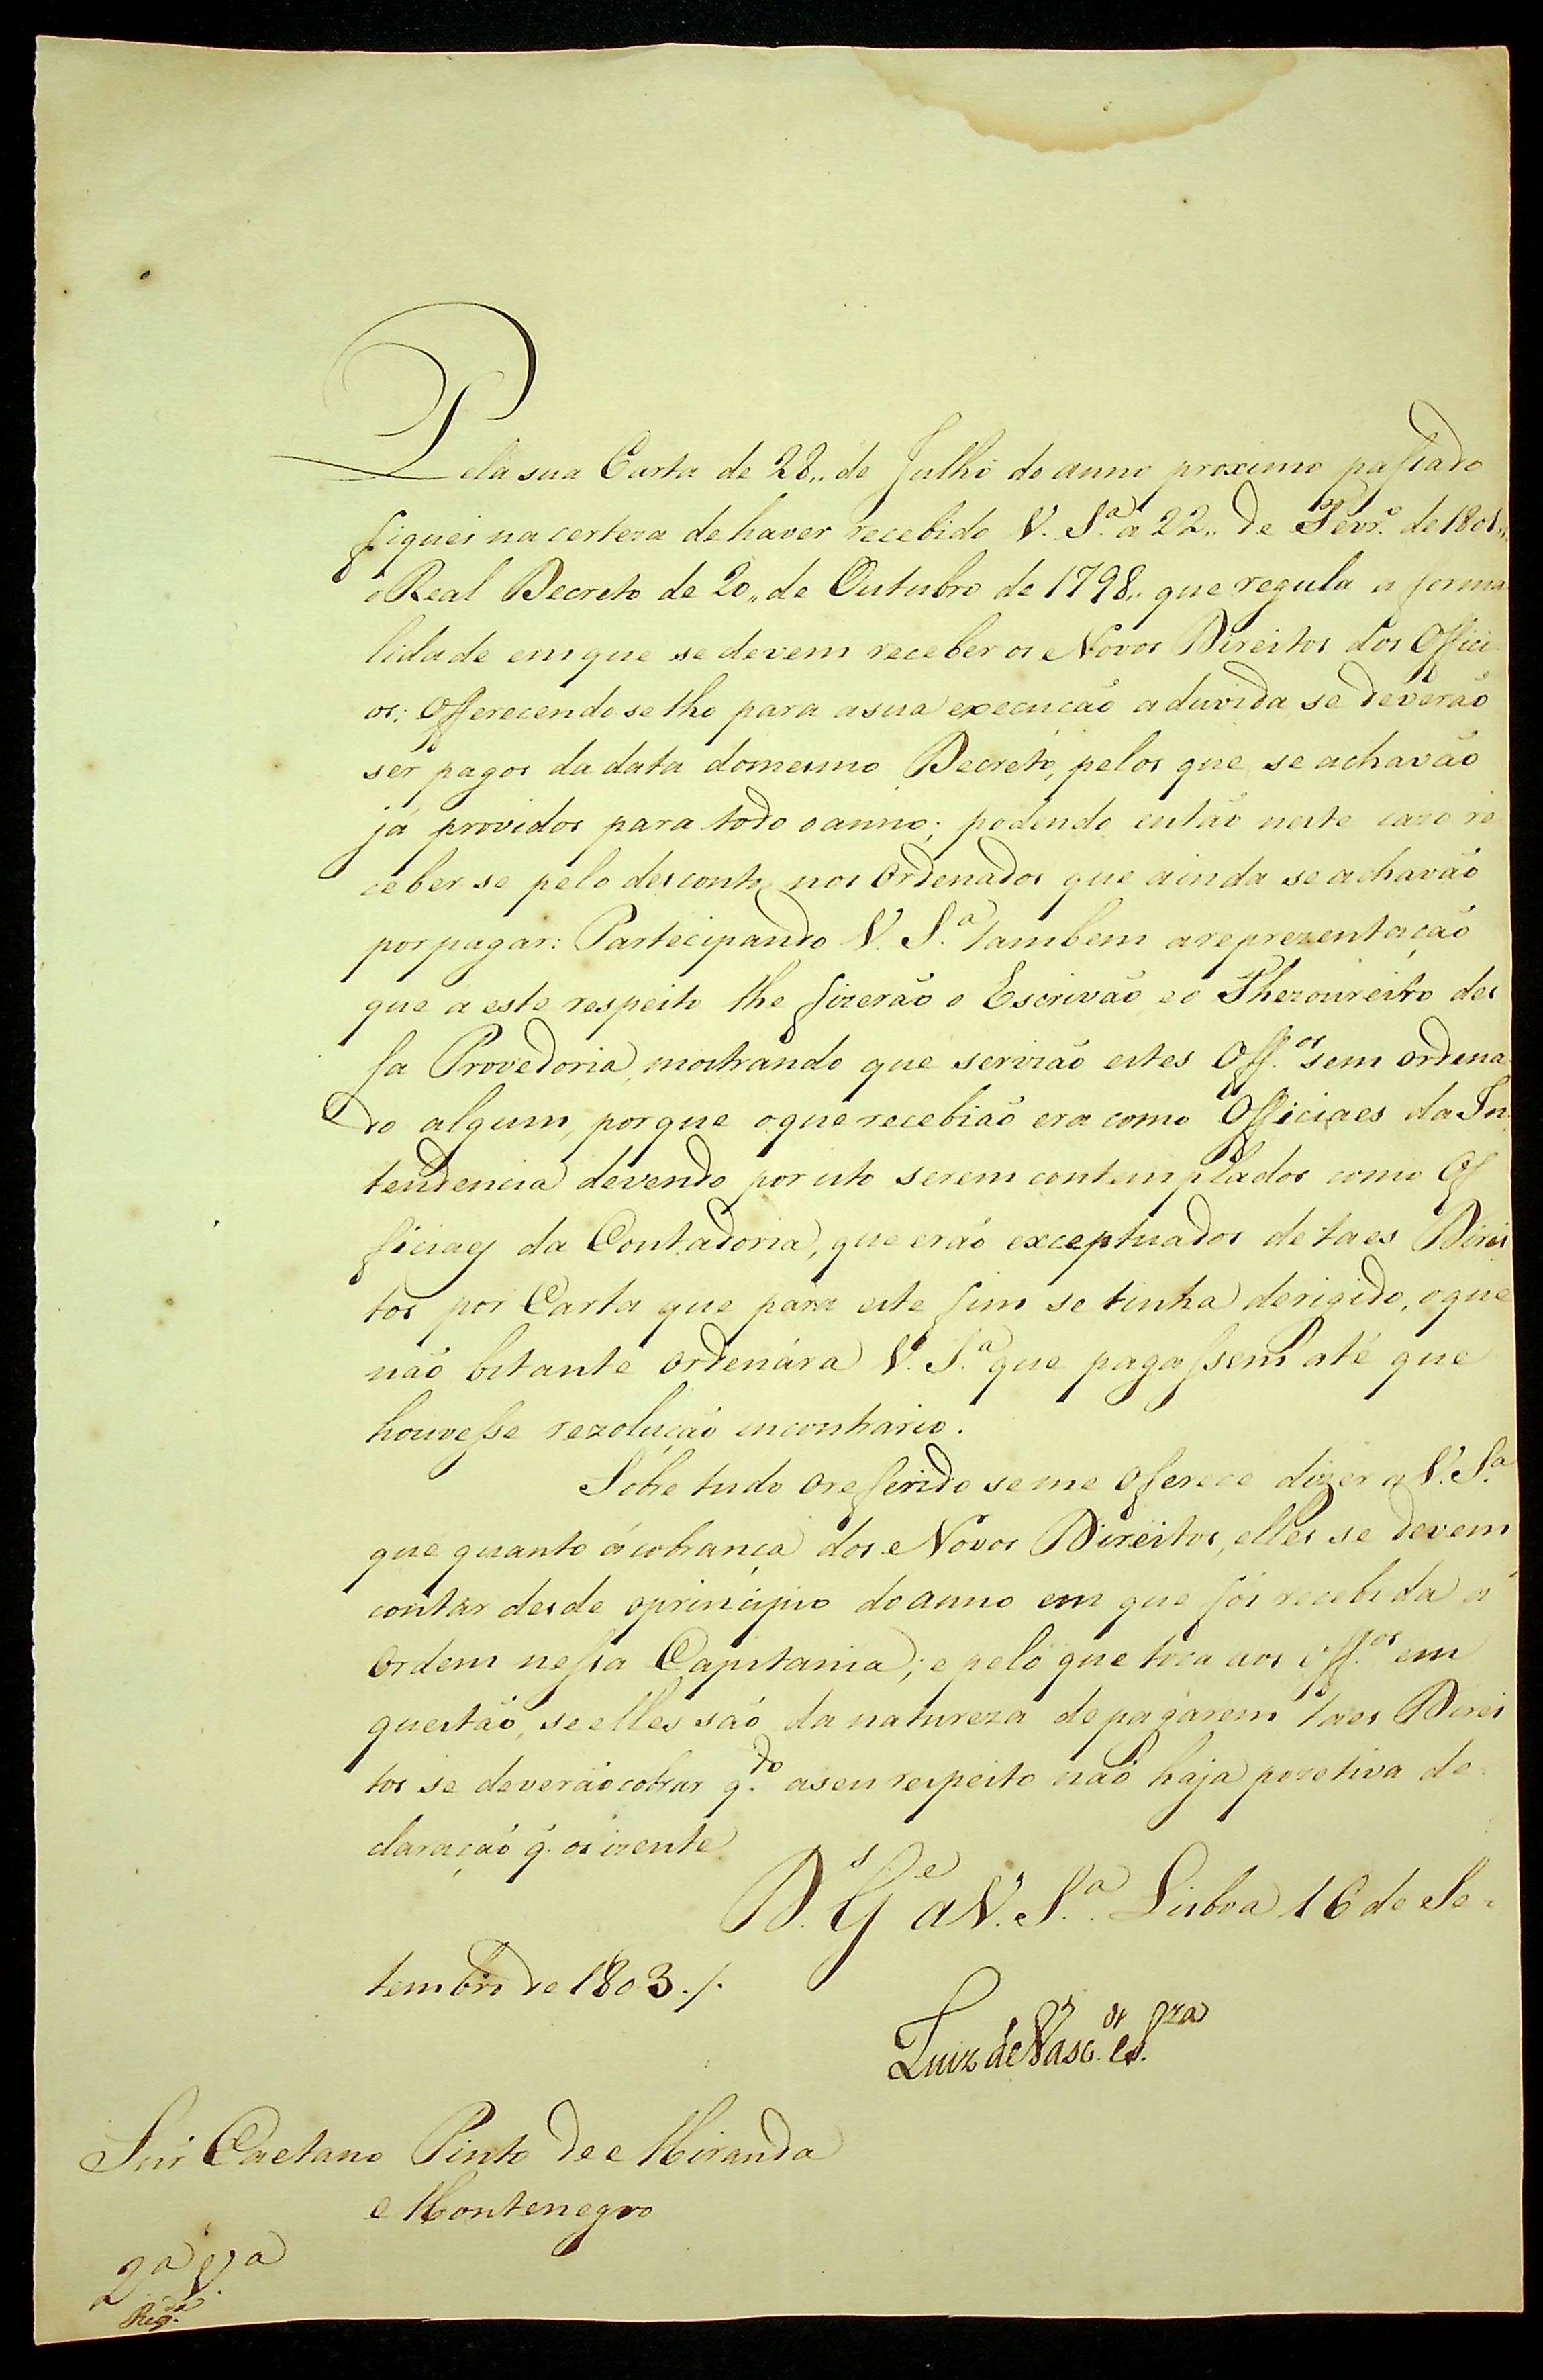 Pela sua Carta de 28,, de Julho do anno proximo passado
fiquei na certeza de haver recebido V. S.ª a 22,, de Fevr.º de 1801,,
o Real Decreto de 20,, de Outubro de 1798,, que regula a forma
lidade em que se devem receber os Novos Direitos dos Offici
os; Offerecendo se lhe para a sua execução a duvida se deverão
ser pagos da data do mesmo Decreto, pelos que se achavão
já providos para todo o anno; podendo então neste cazo re
ceber se pelo desconto nos Ordenados que ainda se achavão
por pagar: Participando V. S.ª tambem a reprezentação
que a este respeito lhe fizerão o Escrivão e o Thezoureiro des
sa Provedoria, mostrando que servião estes Off.os sem ordena
do algum, porque o que recebião era como Officiaes da In
tendencia devendo por isto serem contemplados como Of
ficiaes da Contadoria, que erão exceptuados de taes Direi
tos por Carta que para este fim se tinha derigido, o que
não bstante ordenára V. S.ª que pagassem até que
houvesse rezolução incontrario.
Sobre tudo o refferido se me offerece dizer a V. S.ª
que quanto á cobrança dos Novos Direitos, elles se devem
contar desde o principio do anno em que foi recebida a
Ordem nessa Capitania; e pelo que toca aos off.os em
questão, se elles são da natureza de pagarem taes Direi
tos se deverão cobrar q.do a seu respeito não haja pozetiva de=
claração q̃. os izente
D.s G.e a V. S.ª Lisboa 16 de Se=
tembro de 1803./.
Luiz de Vasc.os e S.za
Snr Caetano Pinto de Miranda
Montenegro
2.ª V.ª
Reg.da